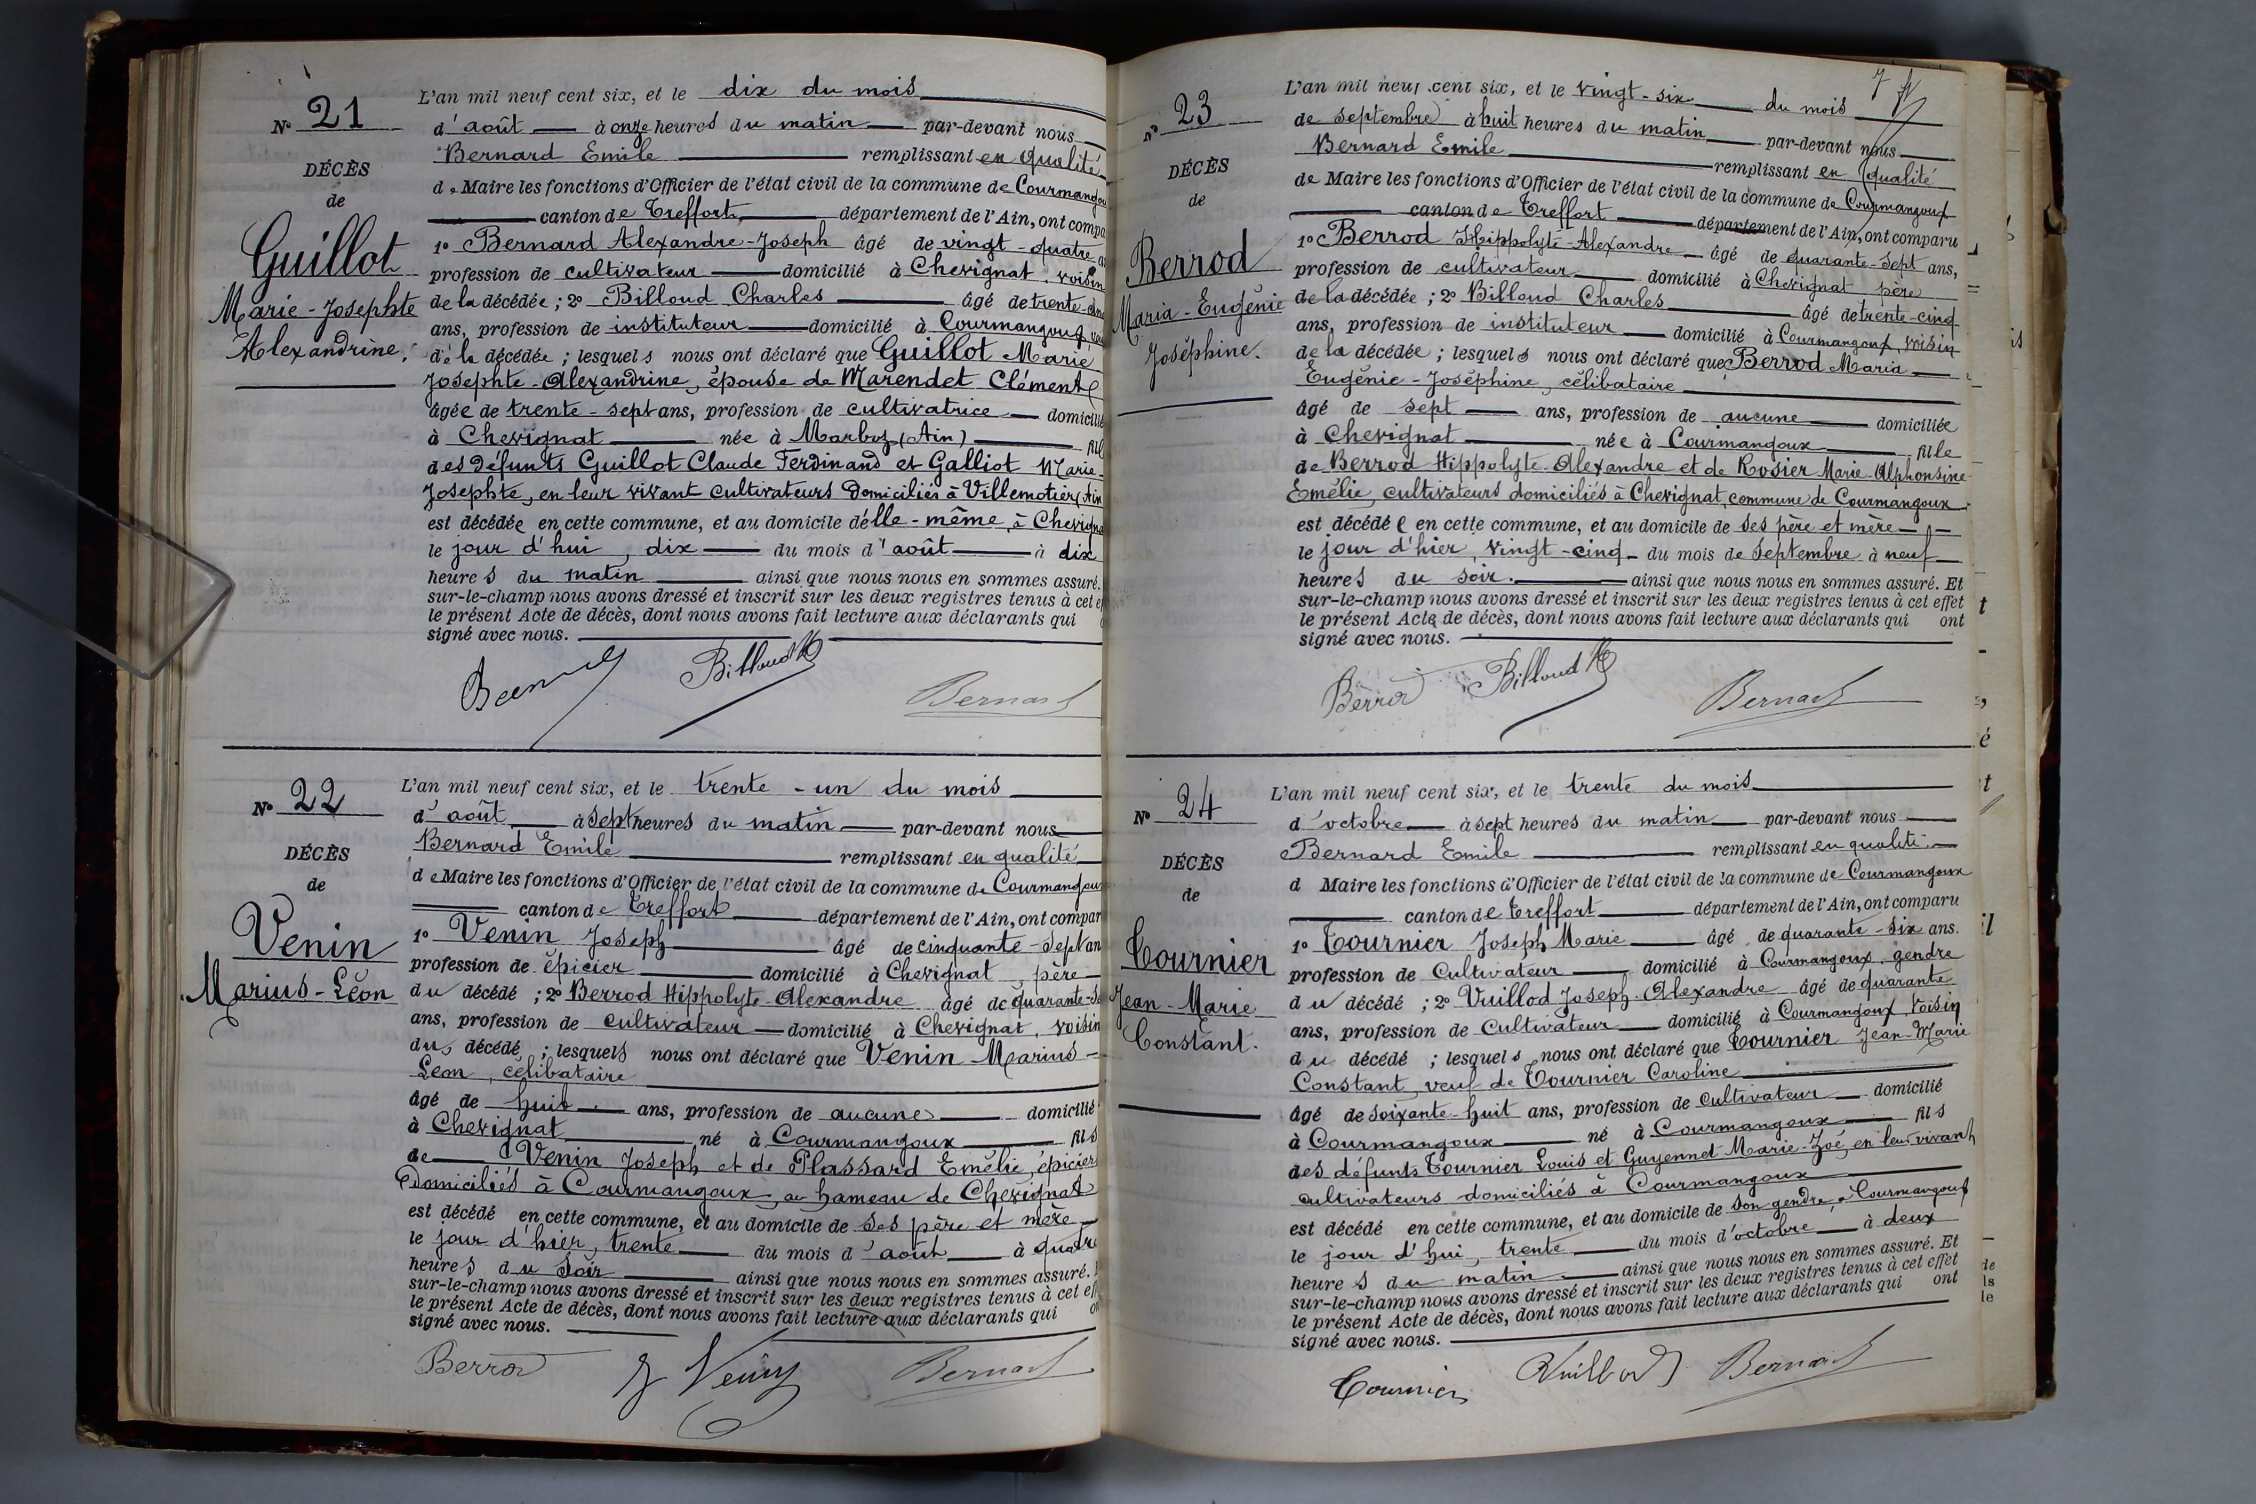 N° 21
DÉCÈS
de
Guillot
Marie-Josephte
Alexandrine.
L'an mil neuf cent six, et le dix du mois
d'août à onze heures du matin par-devant nous
Bernard Emile remplissant en qualité
de Maire les fonctions d'Officier de l'état civil de la commune de Courmangou
canton de Treffort, département de l'Ain, ont compa
1° Bernard Alexandre-Joseph âgé de vingt-quatre a
profession de cultivateur domicilié à Chevignat, voisin
de la décédée; 2° Billoud Charles âgé de trente-
ans, profession de instituteur domicilié à Courmangoux,
de la décédée; lesquels nous ont déclaré que Guillot Marie
Josephte-Alexandrine, épouse de Marendet Clément
âgée de trente-sept ans, profession de cultivatrice domicilié
à Chevignat née à Marboz (Ain) fil
des défunts Guillot Claude Ferdinand et Galliot Marie-
Josephte, en leur vivant cultivateurs domiciliés à Villemotier (Ain
est décédée en cette commune, et au domicile d'elle-même, à Chevigna
le jour d'hui, dix du mois d'août à dix
heures du matin ainsi que nous nous en sommes assuré.
sur-le-champ nous avons dressé et inscrit sur les deux registres tenus à cet e
le présent Acte de décès, dont nous avons fait lecture aux déclarants qui
signé avec nous.
Billoud Ch
Bernard
N° 22
DÉCÈS
de
Venin
Marius-Léon
L'an mil neuf cent six, et le trente-un du mois
d'août à sept heures du matin par-devant nous
Bernard Emile remplissant en qualité
de Maire les fonctions d'Officier de l'état civil de la commune de Courmangoux
canton de Treffort département de l'Ain, ont compar
1° Venin Joseph âgé de cinquante-sept an
profession de épicier domicilié à Chevignat, père
du décédé; 2° Berrod Hippolyte-Alexandre âgé de quarante-se
ans, profession de cultivateur domicilié à Chevignat, voisin
du décédé; lesquels nous ont déclaré que Venin Marius-
Léon, célibataire
âgé de huit ans, profession de aucune domicilié
à Chevignat né à Courmangoux fils
de Venin Joseph et de Plassard Emélie, épiciers
domiciliés à Courmangoux, au hameau de Chevignat
est décédé en cette commune, et au domicile de ses père et mère
le jour d'hier, trente du mois d'août à quatre
heures du soir ainsi que nous nous en sommes assuré.
sur-le-champ nous avons dressé et inscrit sur les deux registres tenus à cet eff
le présent Acte de décès, dont nous avons fait lecture aux déclarants qui o
signé avec nous.
Berrod
J Venin
Bernard
N° 23
DÉCÈS
de
Berrod
Maria-Eugénie
Joséphine.
7
L'an mil neuf cent six, et le vingt-six du mois
de septembre à huit heures du matin par-devant nous
Bernard Emile remplissant en qualité
de Maire les fonctions d'Officier de l'état civil de la commune de Courmangoux
canton de Treffort département de l'Ain, ont comparu
1° Berrod Hippolyte-Alexandre âgé de quarante-sept ans,
profession de cultivateur domicilié à Chevignat père
de la décédée; 2° Billoud Charles âgé de trente-cinq
ans, profession de instituteur domicilié à Courmangoux, voisin
de la décédée; lesquels nous ont déclaré que Berrod Maria
Eugénie-Joséphine, célibataire
âgé de sept ans, profession de aucune domiciliée
à Chevignat née à Courmangoux fille
de Berrod Hippolyte-Alexandre et de Rosier Marie-Alphonsine
Emélie, cultivateurs domiciliés à Chevignat, commune de Courmangoux
est décédée en cette commune, et au domicile de ses père et mère
le jour d'hier, vingt-cinq du mois de septembre à neuf
heures du soir. ainsi que nous nous en sommes assuré. Et
sur-le-champ nous avons dressé et inscrit sur les deux registres tenus à cet effet
le présent Acte de décès, dont nous avons fait lecture aux déclarants qui ont
signé avec nous.
Berrod
Billoud Ch
Bernard
N° 24
DÉCÈS
de
Tournier
Jean-Marie
Constant.
L'an mil neuf cent six, et le trente du mois
d'octobre à sept heures du matin par-devant nous
Bernard Emile remplissant en qualité
d Maire les fonctions d'Officier de l'état civil de la commune de Courmangoux
canton de Treffort département de l'Ain, ont comparu
1° Tournier Joseph Marie âgé de quarante-six ans.
profession de Cultivateur domicilié à Courmangoux, gendre
du décédé; 2° Vuillod Joseph-Alexandre âgé de quarante
ans, profession de Cultivateur domicilié à Courmangoux, voisin
du décédé; lesquels nous ont déclaré que Tournier Jean-Marie
Constant, veuf de Tournier Caroline
âgé de soixante-huit ans, profession de cultivateur domicilié
à Courmangoux né à Courmangoux fils
des défunts Tournier Louis et Guyennet Marie-Zoé, en leur vivant
cultivateurs domiciliés à Courmangoux
est décédé en cette commune, et au domicile de son gendre, à Courmangoux
le jour d'hui, trente du mois d'octobre à deux
heures du matin ainsi que nous nous en sommes assuré. Et
sur-le-champ nous avons dressé et inscrit sur les deux registres tenus à cet effet
le présent Acte de décès, dont nous avons fait lecture aux déclarants qui ont
signé avec nous.
Tournier
Vuillod J
Bernard